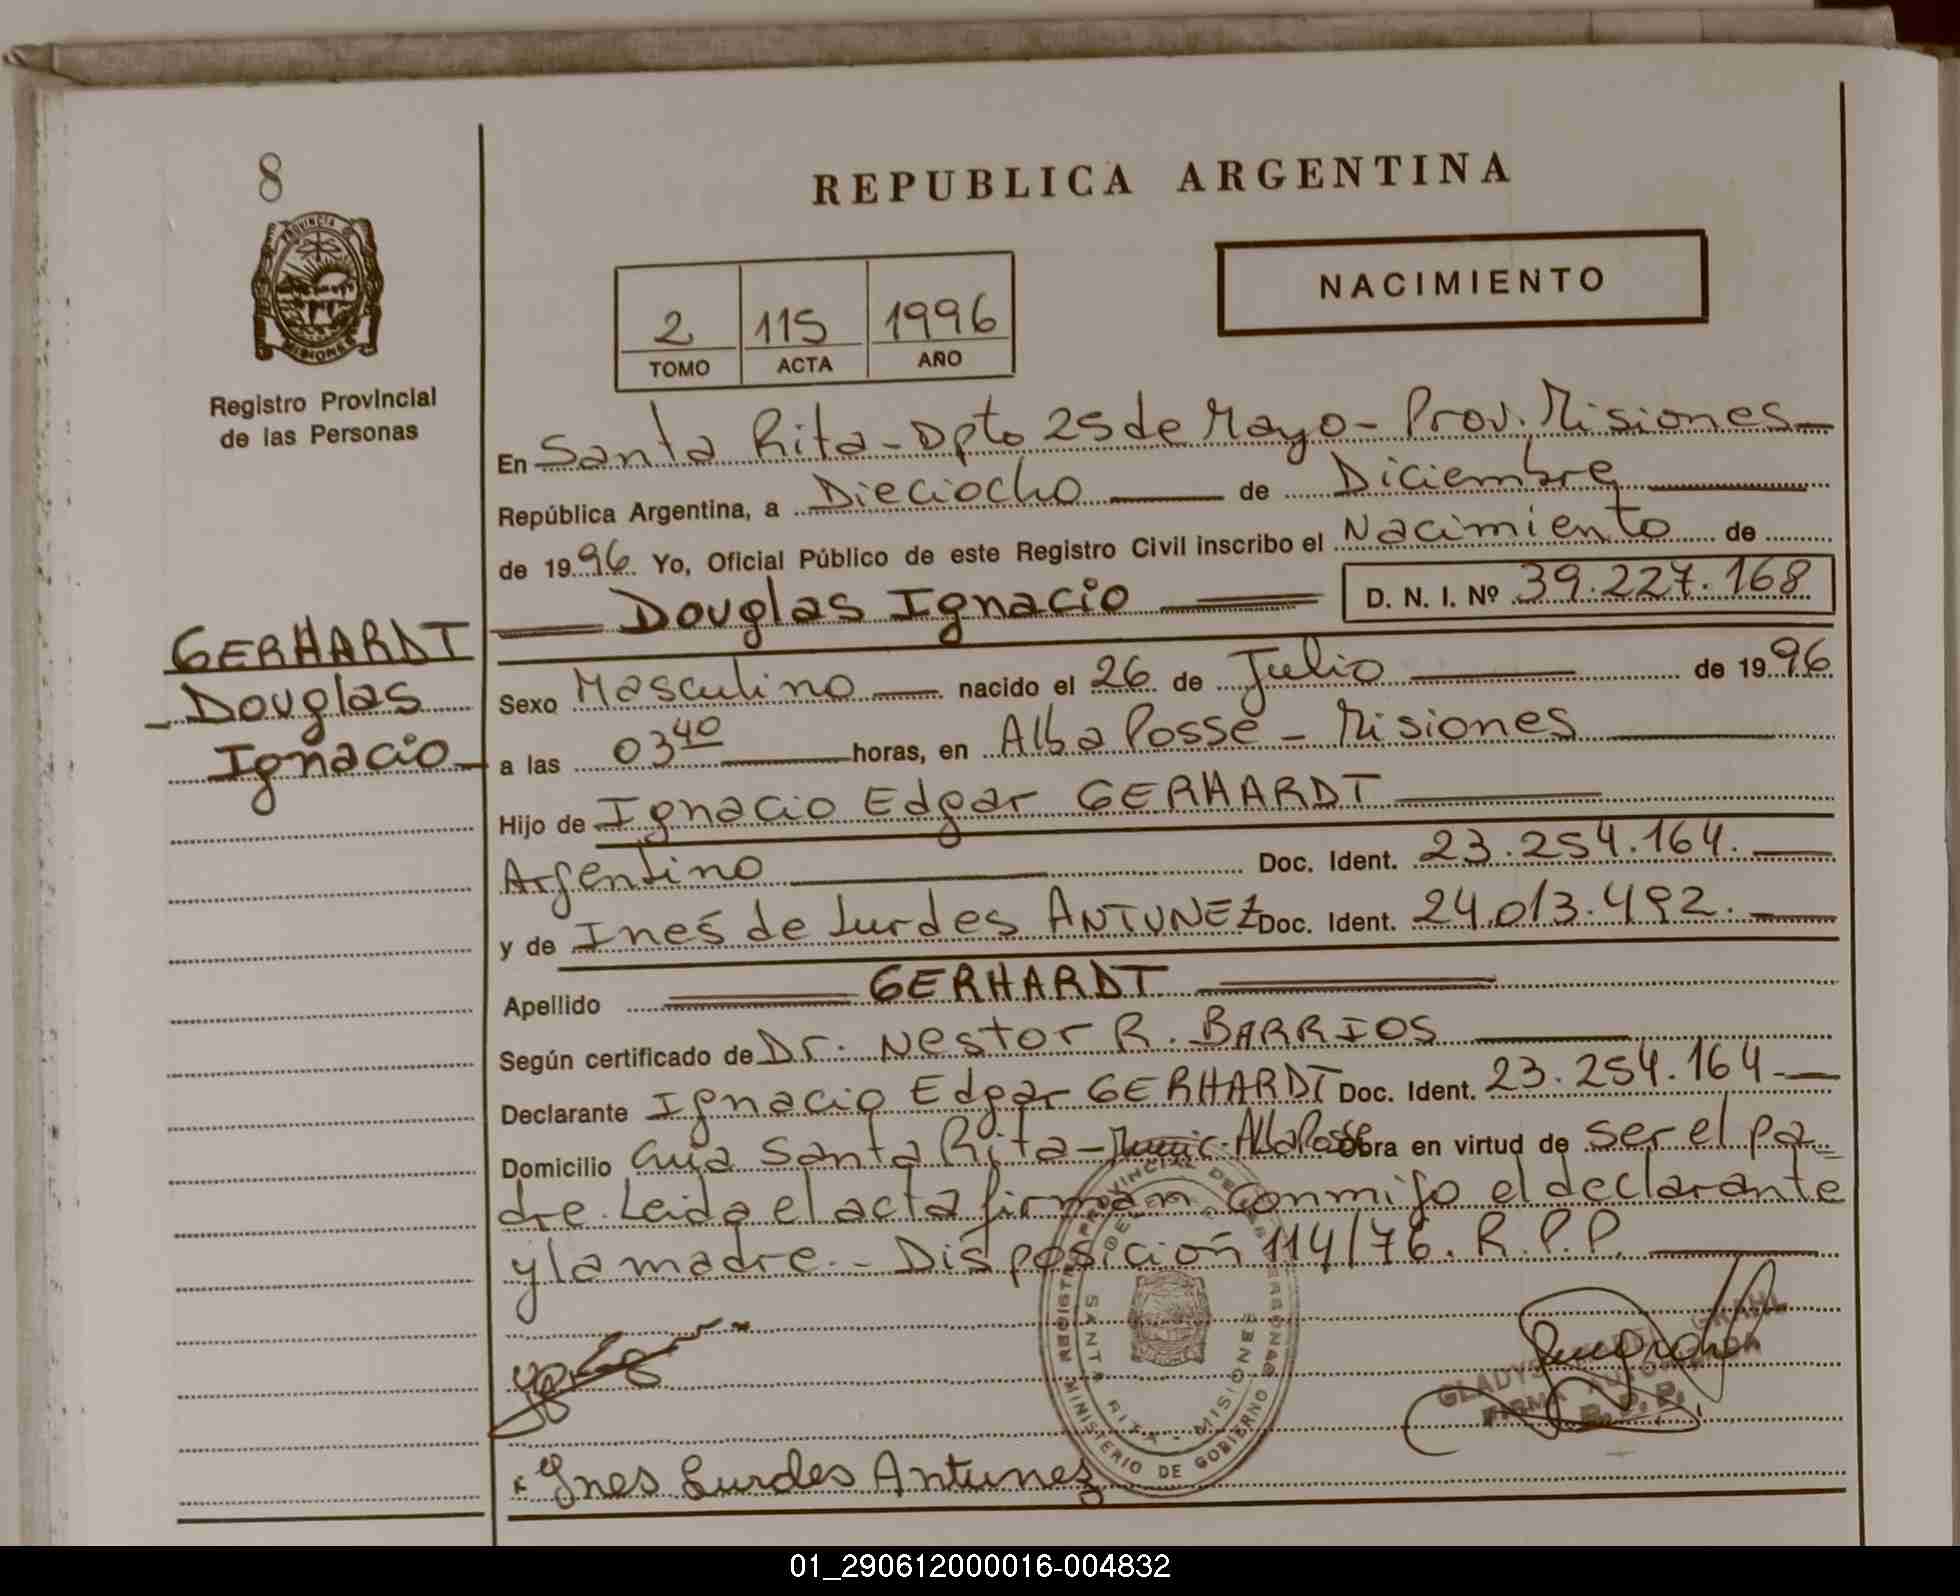 8
REPUBLICA ARGENTINA
PROVINCIA DE
MISIONES
Registro Provincial
de las Personas
NACIMIENTO
2 115 1996
TOMO ACTA AÑO
En Santa Rita - Dpto 25 de Mayo - Prov. Misiones
República Argentina, a Dieciocho de Diciembre
de 1996 Yo, Oficial Público de este Registro Civil inscribo el Nacimiento de
Douglas Ignacio D. N. I. Nº 39.227.168
GERHARDT
Douglas
Ignacio
Sexo Masculino nacido el 26 de Julio de 1996
a las 03 40 horas, en Alba Posse - Misiones
Hijo de Ignacio Edgar GERHARDT
Argentino Doc. Ident. 23.254.164.
y de Inés de Lurdes ANTUNEZ Doc. Ident. 24.013.492.
Apellido GERHARDT
Según certificado de Dr. Nestor R. BARRIOS
Declarante Ignacio Edgar GERHARDT Doc. Ident. 23.254.164
Domicilio Cnia Santa Rita - Alba Posse Obra en virtud de ser el pa
dre. Leida el acta firman conmigo el declarante
y la madre. - Disposición 114/76. R.P.P.
REGISTRO PROVINCIAL DE LAS PERSONAS
SANTA RITA - MISIONES
MINISTERIO DE GOBIERNO
GLADYS GRAHL
FIRMA AUTORIZADA
R.P.P.
Ynes Lurdes Antunez
01_290612000016-004832